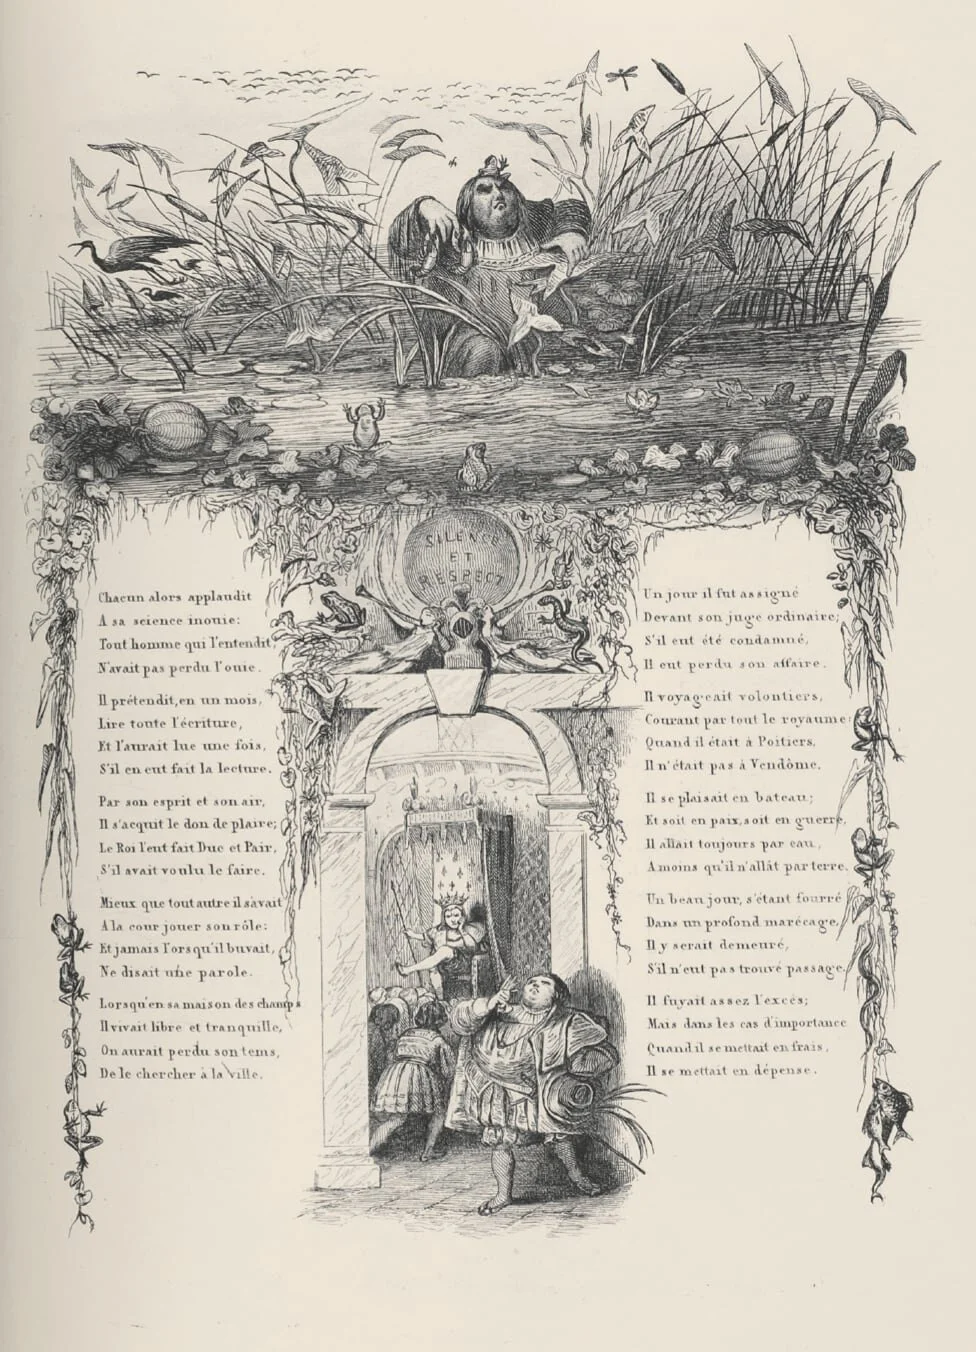 SILENCE
ET
RESPECT
Chacun alors applaudit
A sa science inouie:
Tout homme qui l'entendit
N'avait pas perdu l'ouie.
Il prétendit, en un mois,
Lire toute l'écriture,
Et l'aurait lue une fois,
S'il en eut fait la lecture.
Par son esprit et son air,
Il s'acquit le don de plaire;
Le Roi l'eut fait Duc et Pair,
S'il avait voulu le faire.
Mieux que tout autre il savait
A la cour jouer son rôle:
Et jamais lorsqu'il buvait,
Ne disait une parole.
Lorsqu'en sa maison des champs
Il vivait libre et tranquille,
On aurait perdu son tems,
De le chercher à la ville.
Un jour il fut assigné
Devant son juge ordinaire;
S'il eut été condamné,
Il eut perdu son affaire.
Il voyageait volontiers,
Courant par tout le royaume:
Quand il était à Poitiers,
Il n'était pas à Vendôme.
Il se plaisait en bateau;
Et soit en paix, soit en guerre,
Il allait toujours par eau,
A moins qu'il n'allât par terre.
Un beau jour, s'étant fourré
Dans un profond marécage,
Il y serait demeuré,
S'il n'eut pas trouvé passage.
Il fuyait assez l'excès;
Mais dans les cas d'importance
Quand il se mettait en frais,
Il se mettait en dépense.